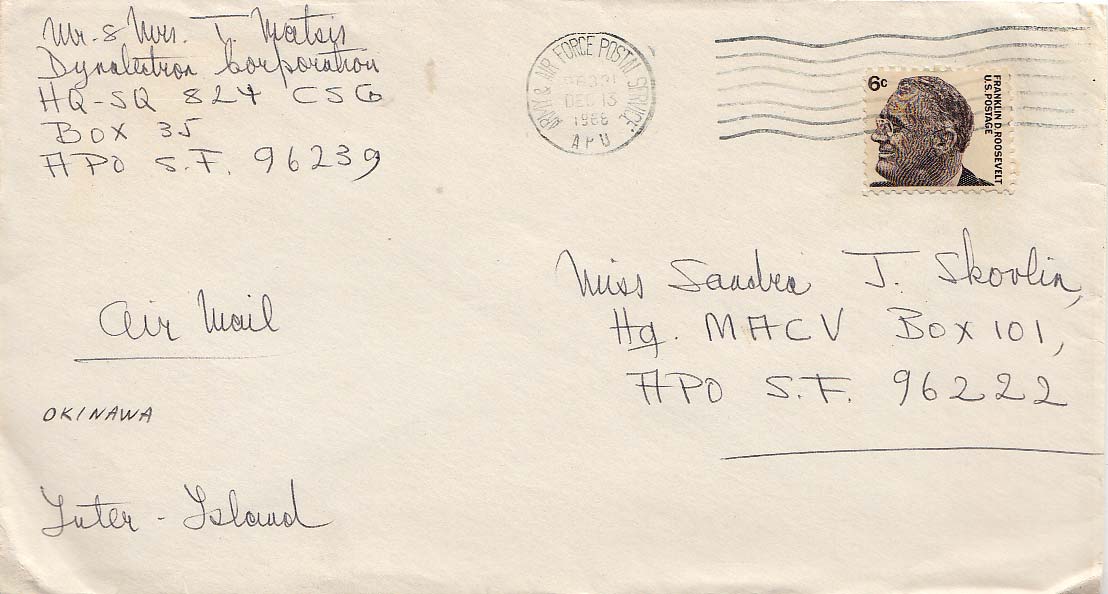 Mr. & Mrs. T. Matsis
Dynalectron Corporation
HQ-SQ 824 CSG
BOX 35
APO S.F. 96239
ARMY & AIR FORCE POSTAL SERVICE
DEC 13
1966
APO
6c
FRANKLIN D. ROOSEVELT
U.S. POSTAGE
Miss Sandra J. Skovlin,
Hq. MACV Box 101,
APO S.F. 96222
Air Mail
OKINAWA
Inter-Island